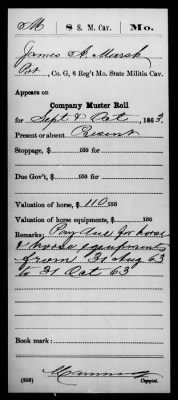 M 8 S. M. Cav. Mo.
James A. Marsh
Pvt, Co. G, 8 Reg't Mo. State Militia Cav.
Appears on
Company Muster Roll
for Sept & Oct, 1863.
Present or absent Present
Stoppage, $ 100
Due Gov't, $ 100
Valuation of horse, $ 110 100
Valuation of horse equipments, $ 100
Remarks: Pay due for horse
& horse equipments
from 31 Aug 63
to 31 Oct 63
Book mark:
(356)
Copyist.